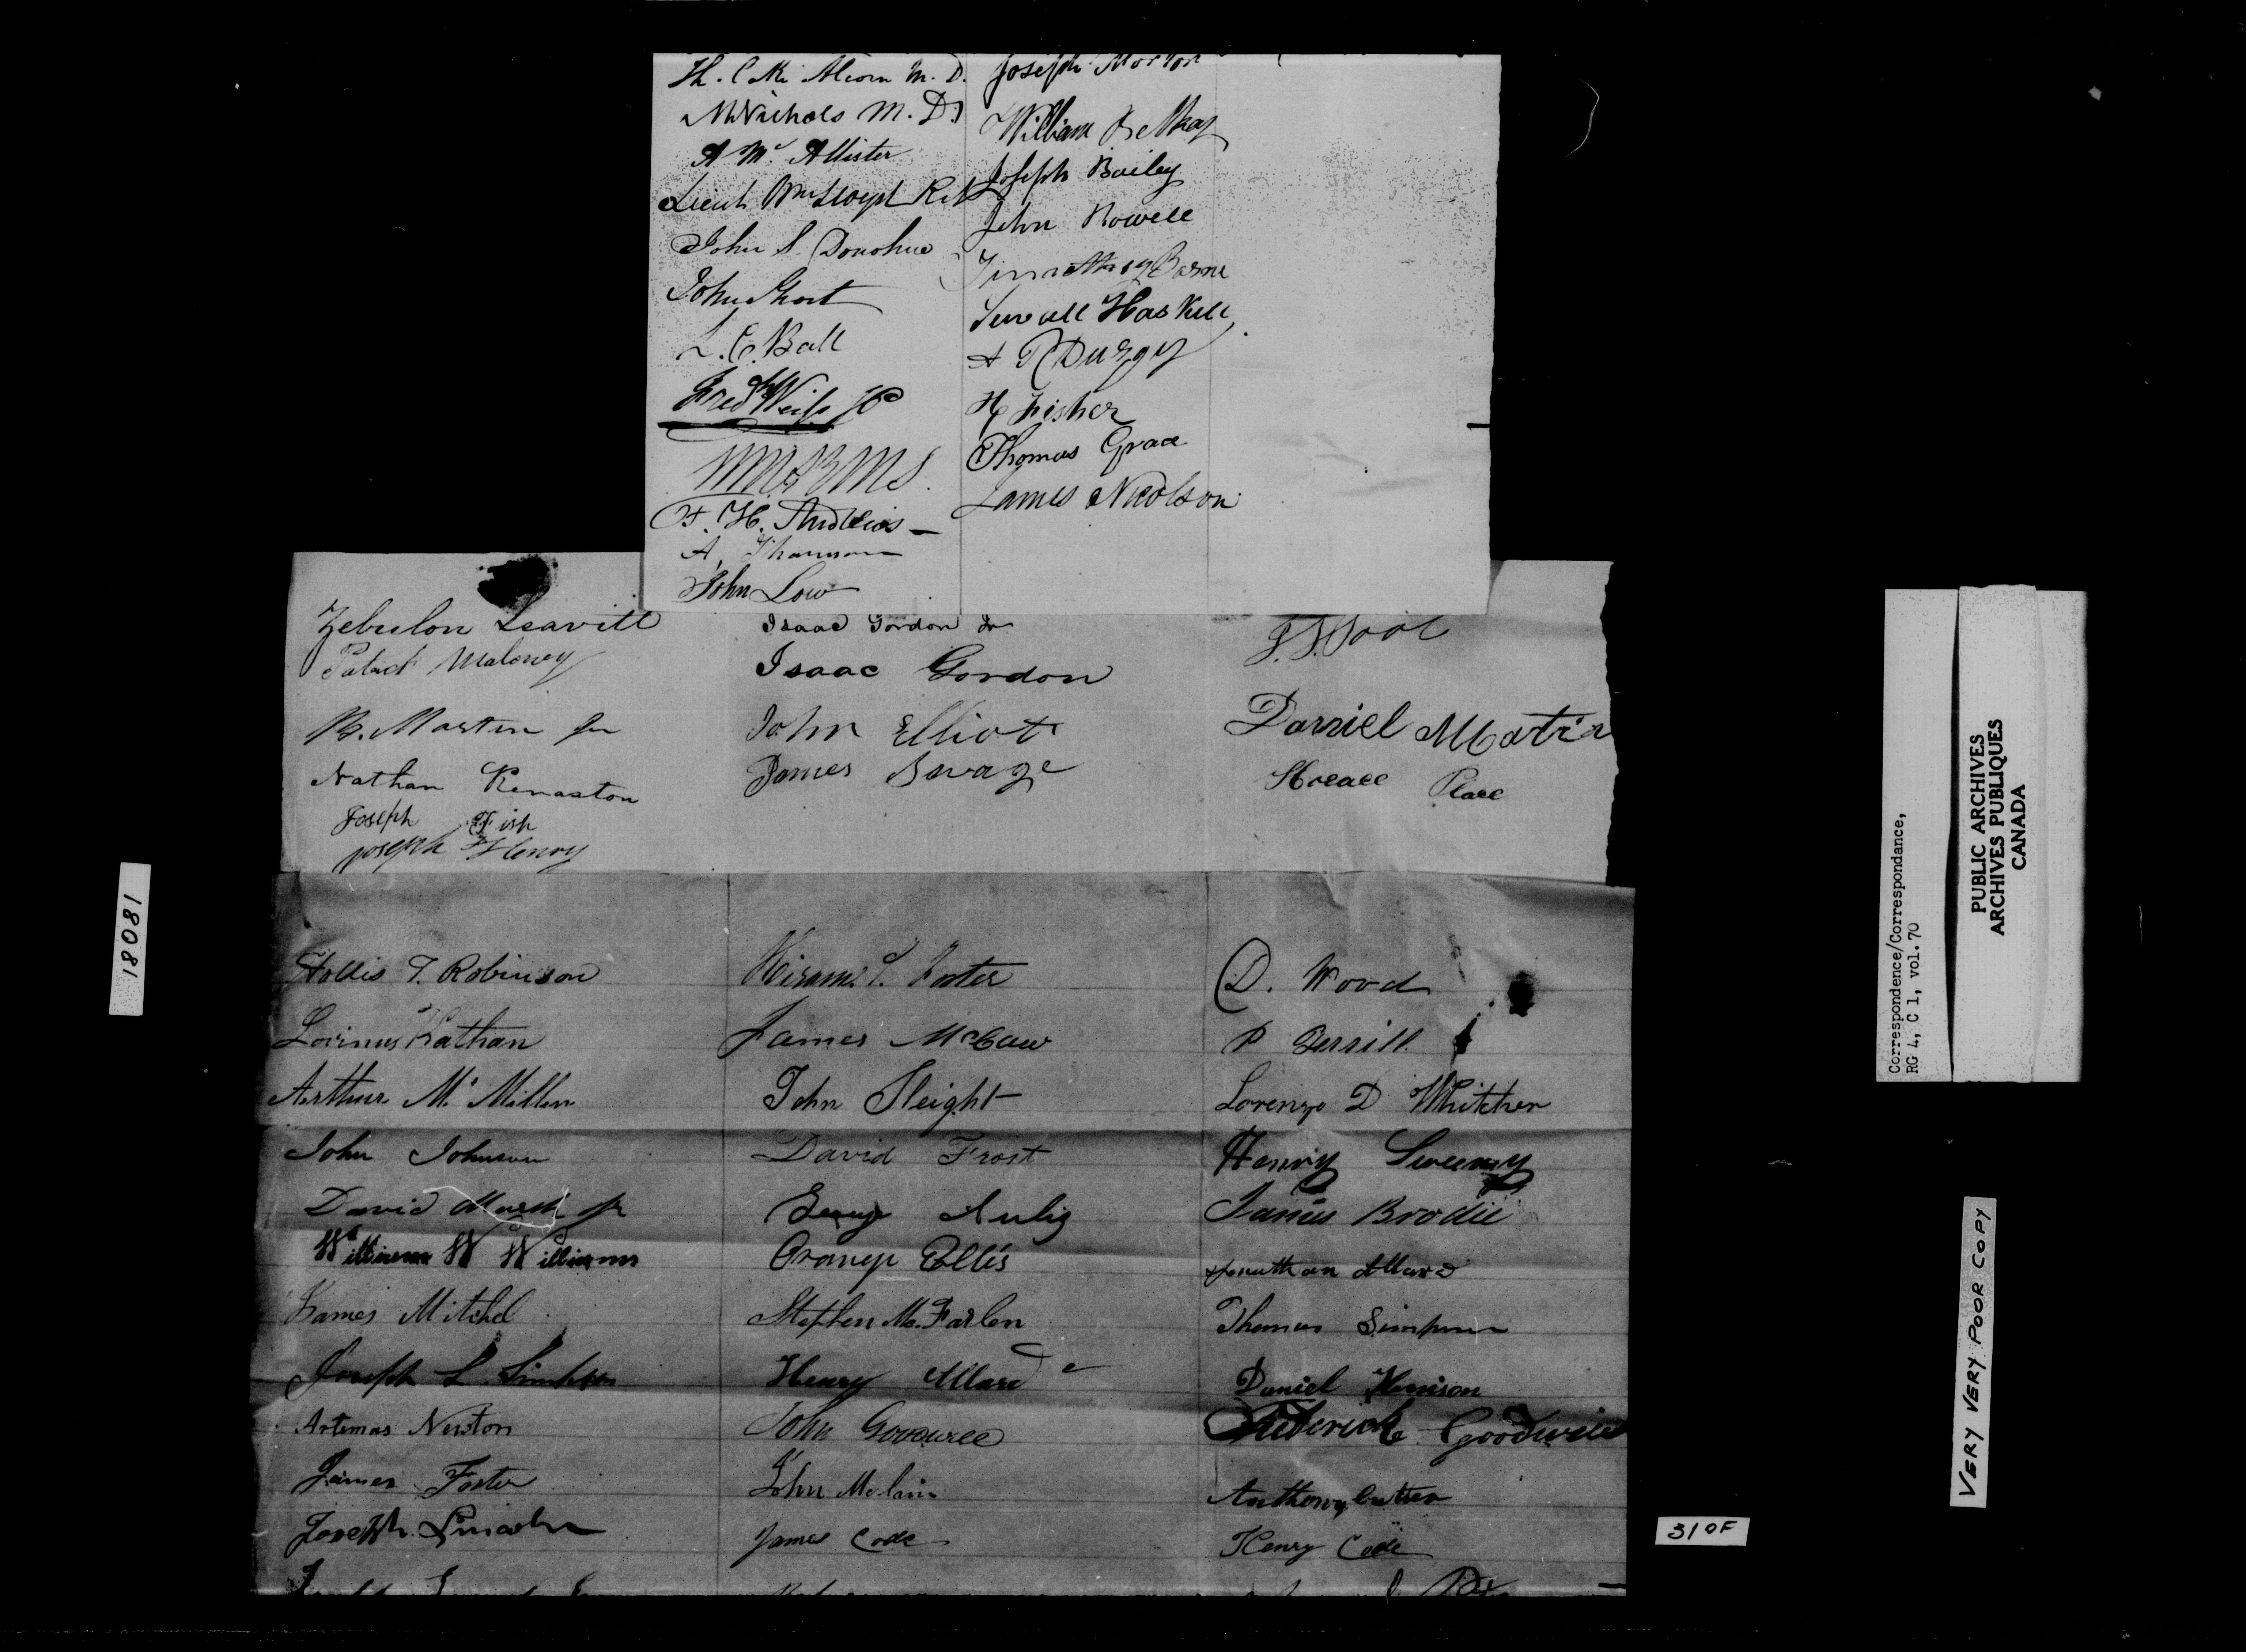 M Nichols M.D.
A Mc Allister
Lieut Wm Lloyd R.N
John S. Donohue
John Short
L. C. Ball
Fredk Weiss JP
F. H. Andrews
A. Thomson
John Low
Joseph Morton
William
Joseph Bailey
John Rowell
Timothy Barne
Sewall Haskell
H Fisher
Thomas Grace
James Nicolson
Zebulon Leavitt
Patrick Maloney
B. Martin Jn
Nathan Kenaston
Joseph Fish
Joseph Henry
Isaac Gordon Jr
Isaac Gordon
John Elliot
James Savage
Daniel Martin
Horace Place
Hollis T. Robinson
Lovinus Kathan
Arthur Mc Millen
John Johnson
David Marsh Jr
William W Williams
James Mitchel
Joseph L. Simpson
Artemas Newton
James Foster
Joseph Lincoln
Hiram T. Foster
James McCaw
John Sleight
David Frost
George
Orange Ellis
Stephen Mc.Farlen
Henry Allard
John
John Mclain
James Code
D. Wood
P
Lorenzo D Whitcher
Henry Sweeney
James Brodie
Jonathan Allard
Thomas Simpson
Daniel
Frederick Goodwin
Anthony Cutter
Henry Code
18081
31 OF
Correspondence/Correspondance,
RG 4, C 1, vol. 70
PUBLIC ARCHIVES
ARCHIVES PUBLIQUES
CANADA
VERY VERY POOR COPY